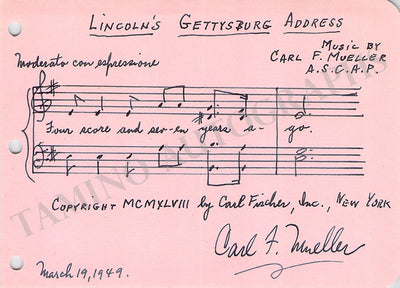 LINCOLN'S GETTYSBURG ADDRESS
MUSIC BY
CARL F. MUELLER
A.S.C.A.P.
Moderato con espressione
Four score and sev-en years a- go.
COPYRIGHT MCMXLVIII by Carl Fischer, Inc., NEW YORK
Carl F. Mueller
March 19, 1949.
TAMINO AUTOGRAPHS